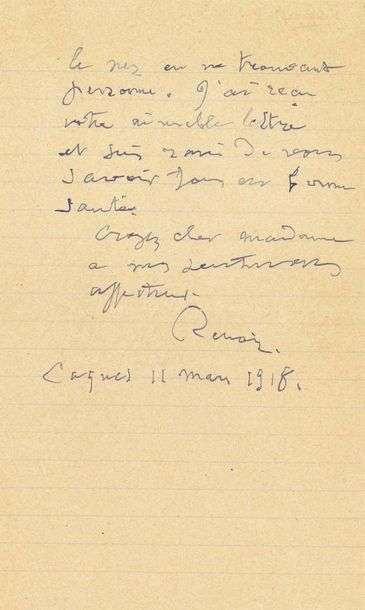 le nez en ne trouvant
personne. J'ai reçu
votre aimable lettre
et suis ravi de vous
savoir tous en bonne
santé.
Croyez cher madame
a mes sentiments
affectueux.
Renoir.
Cagnes 11 mars 1918.